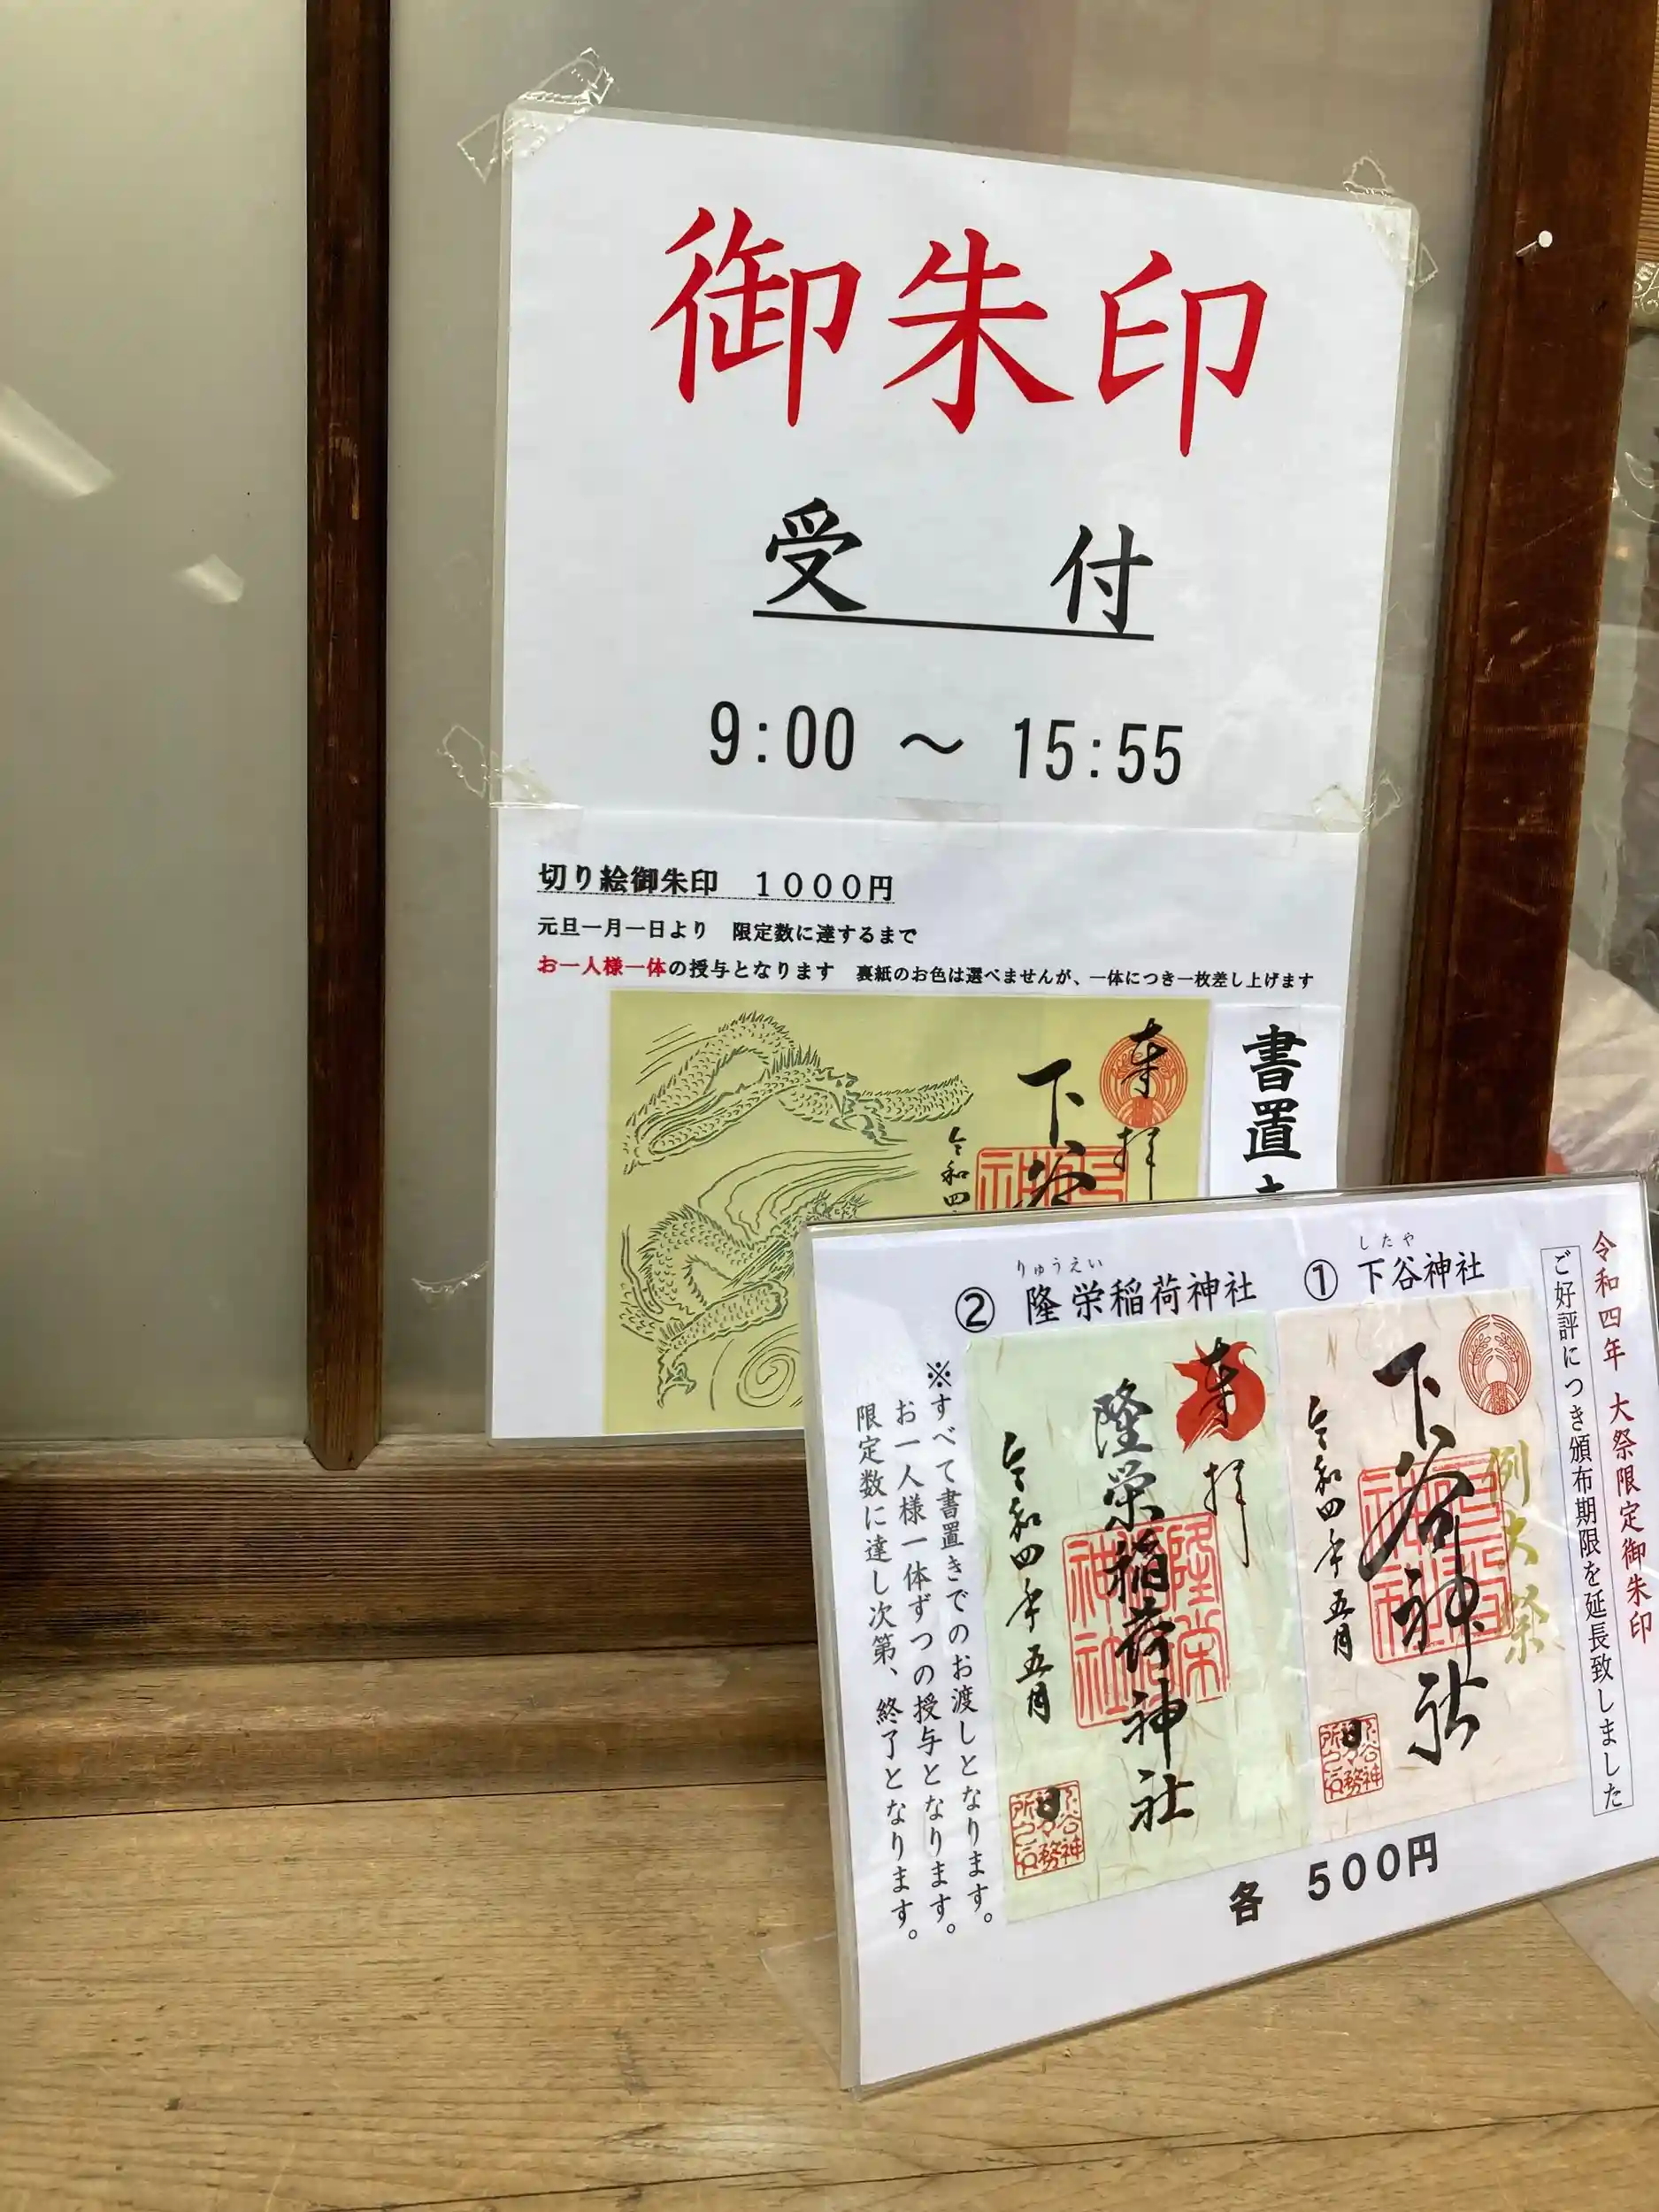 御朱印
受付
9:00 ～ 15:55
切り絵御朱印　1000円
元旦一月一日より　限定数に達するまで
お一人様一体の授与となります　裏紙のお色は選べませんが、一体につき一枚差し上げます
奉拝
下谷
令和四
書置
令和四年 大祭限定御朱印
ご好評につき頒布期限を延長致しました
① 下谷神社
したや
例大祭
下谷神社
令和四年五月
日
② 隆栄稲荷神社
りゅうえい
奉拝
隆栄稲荷神社
令和四年五月
日
※すべて書置きでのお渡しとなります。
お一人様一体ずつの授与となります。
限定数に達し次第、終了となります。
各　500円